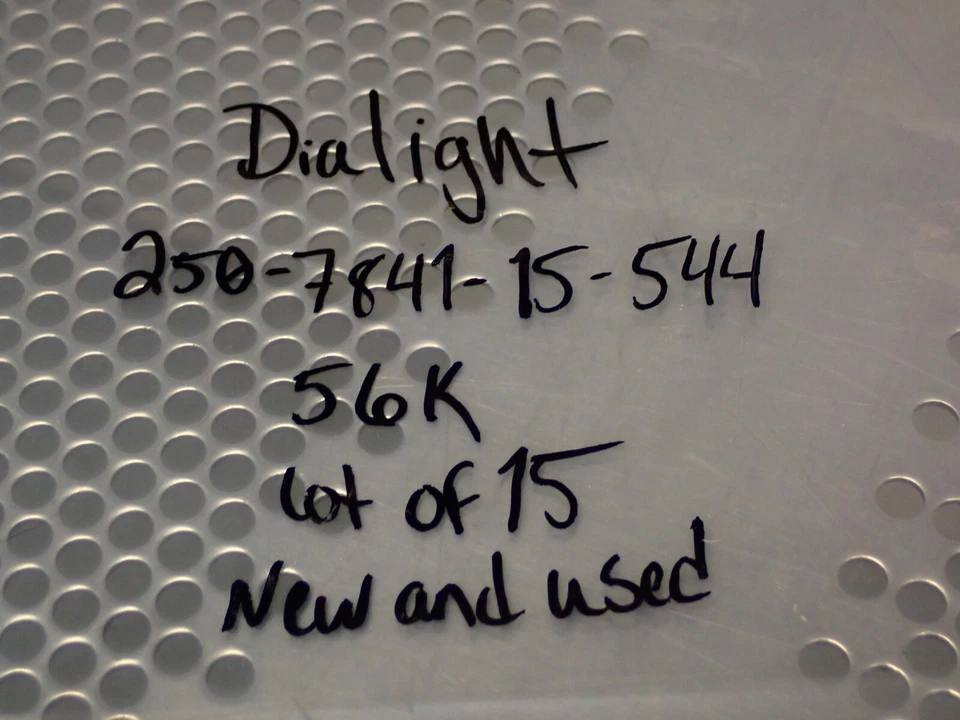 Dialight
250-7841-15-544
56K
Lot of 15
New and used